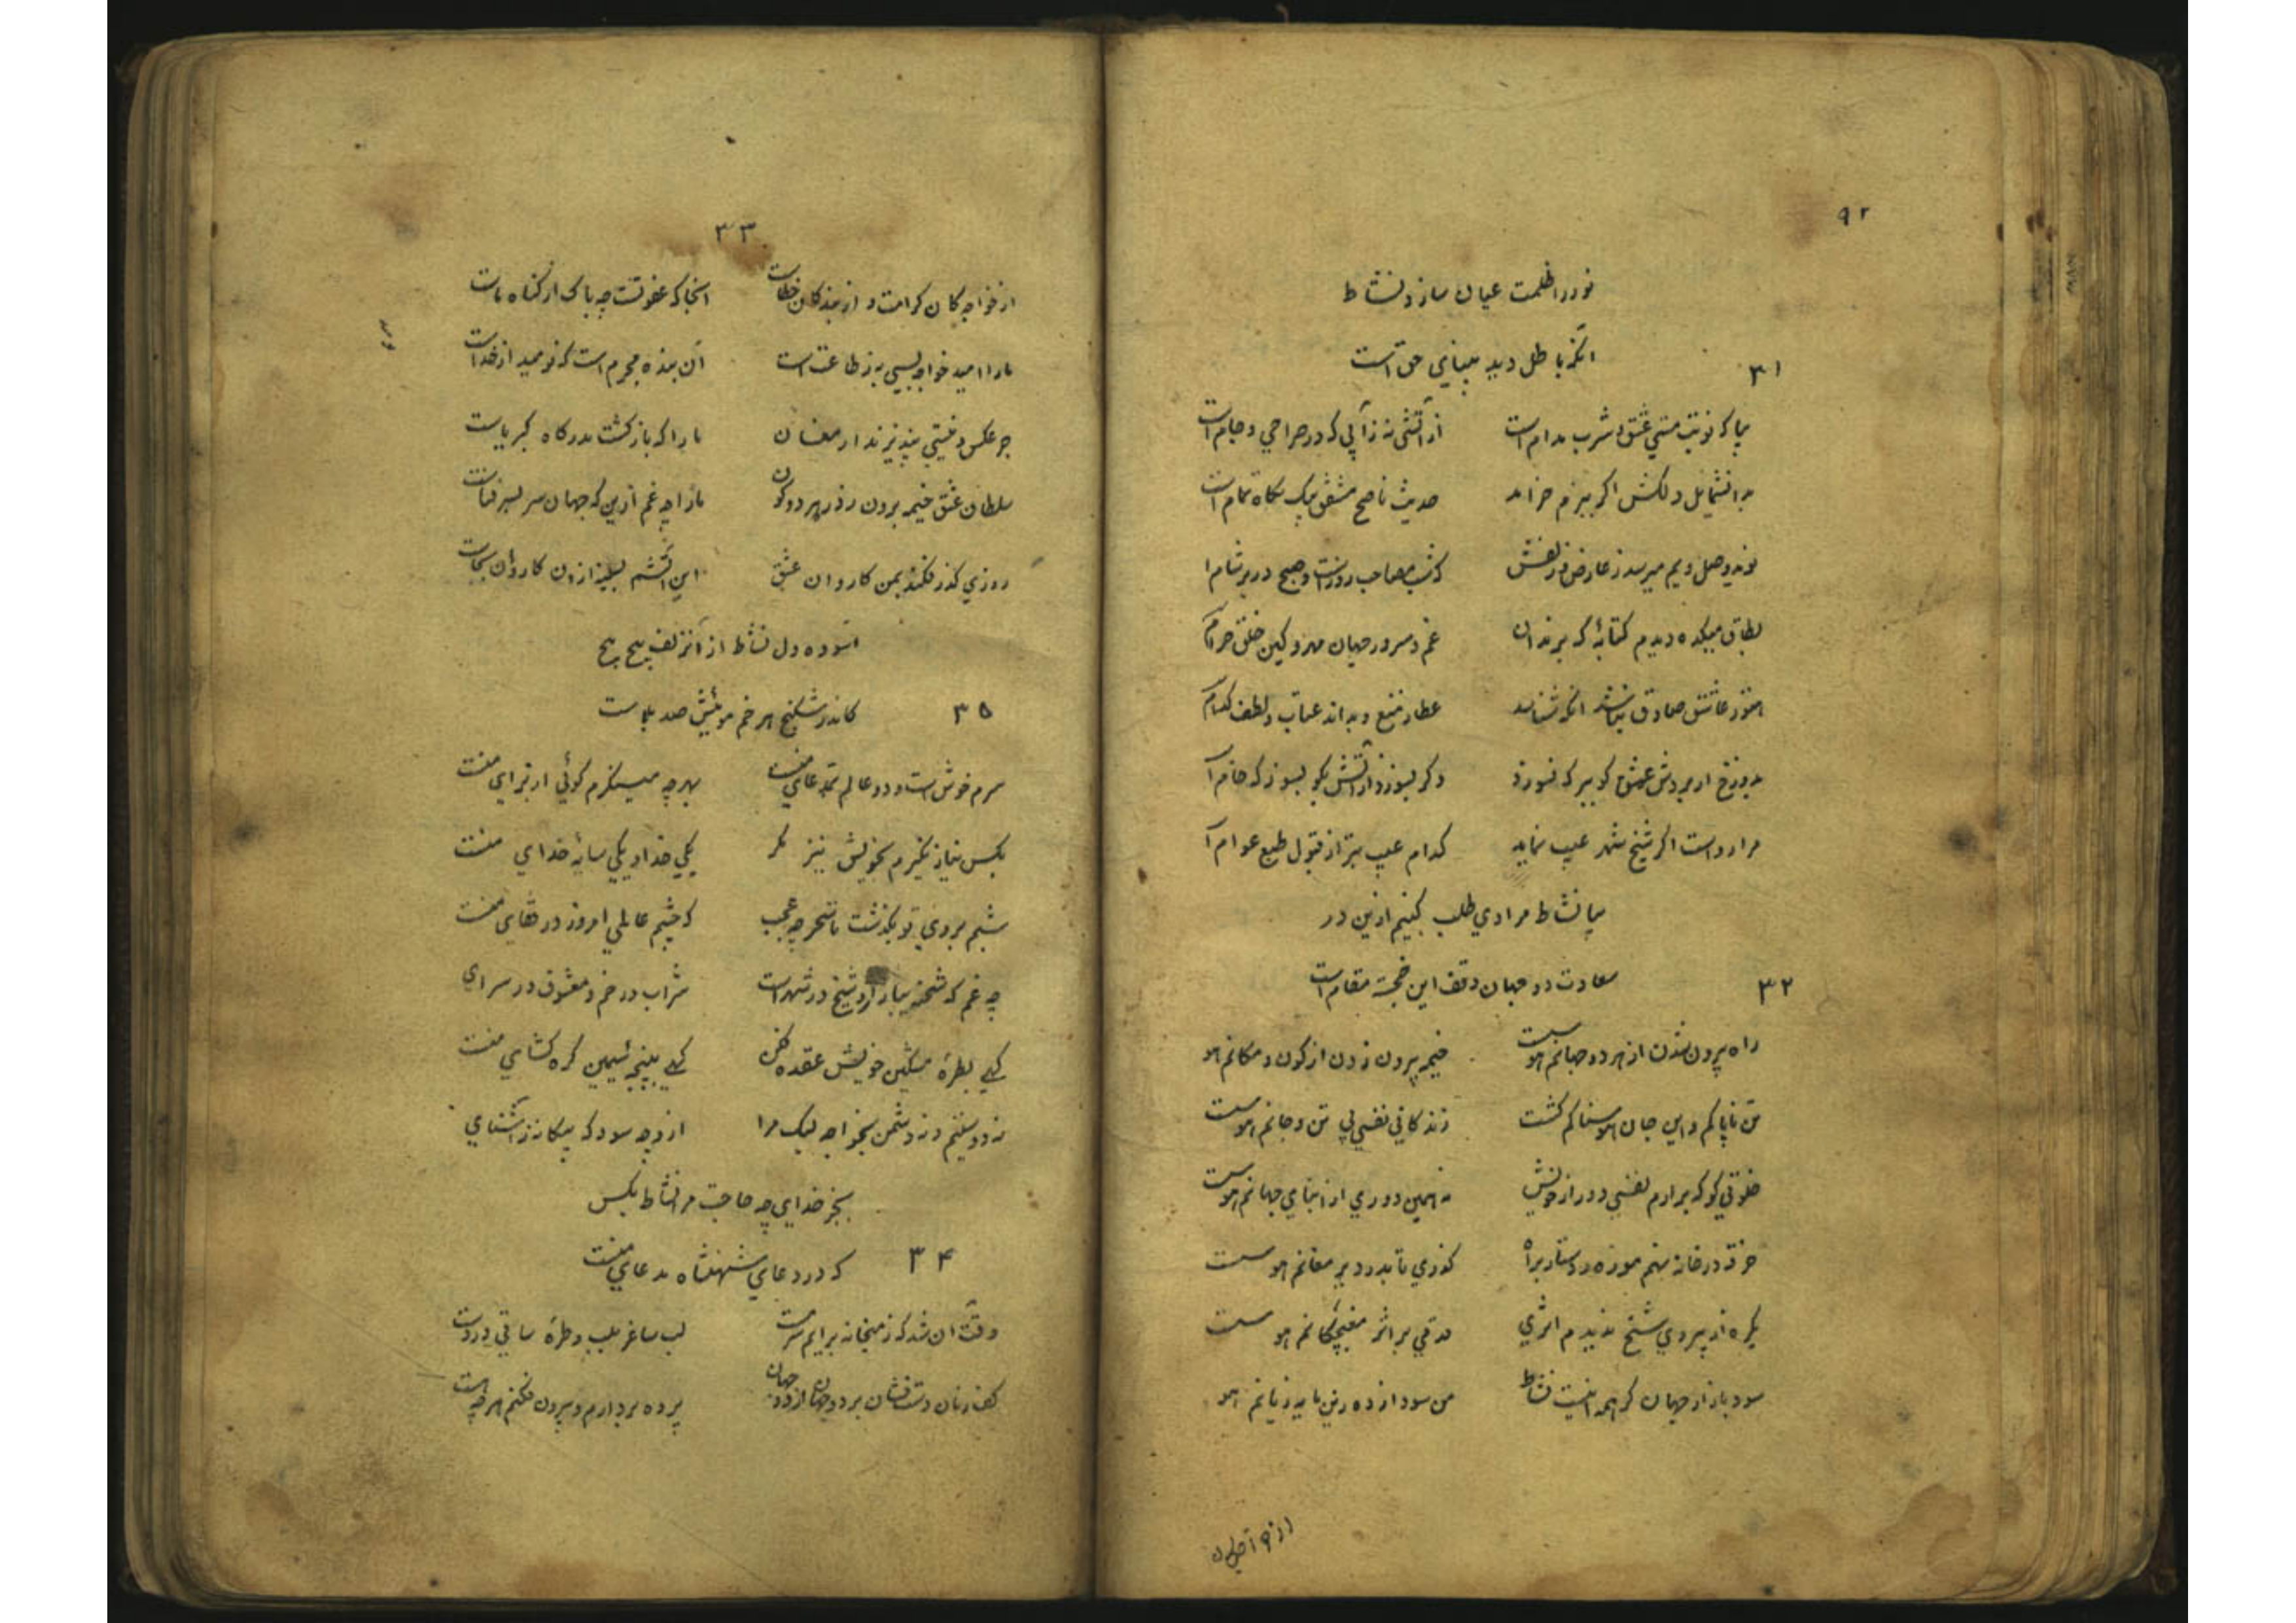 ۹۲
نور در ظلمت عیان سازد نشاط
انکز باطل دید بینایی حق است
۳۱
بیا که نوبت مستی عشق و شرب مدام است از آتشی نه ز آبی که در صراحی و جام است
بدانشمایل دلکش اکر ببزم خرامد حدیث ناصح مشفق بیک نکاه تمام است
نوید وصل و بیم میرسد ز عارض و زلفش که شب مصاحب روز است و صبح در بر شام ا
بطاق میکده دیدم کتابهٔ که برندان غم و سرور جهان مهر و کین خلق حرام
هنوز عاشق صادق نباشد انکه شناسد عطا و منع و بداند عتاب و لطف کدام
بدوزخ ار برودش عشق کو ببر که نسوزد وکر بسوزد از آتش بکو بسوز که خام ا
مرا رواست اکر شیخ شهر عیب نماید کدام عیب بتر از قبول طبع عوام ا
بیا نشاط مرادی طلب کنیم ازین در
سعادت دو جهان وقف این خجسته مقام است
۳۲
راه بیرون شدن از هر دو جهانم هوست خیمه بیرون زدن از کون و مکانم هو
تن ناپاکم و این جان هوسناکم کشت زندکانی نفسی بی تن و جانم هوست
خلوتی کو که برارم نفسی دور از خویش نه همین دوری از ابنای جهانم هوست
خرقه در خانه نهم موزه و دستار براه کذری تا بدر دیر مغانم هوست
یکره از پیروی شیخ ندیدم اثری قدمی بر اثر مغبچکانم هوست
سود بازار جهان کر همه اینست نشاط من سودازده زین مایه زیانم هو
۳۳
از خواجه کان کرامت و از بندکان خطاست انجا که عفو تست چه باک از کناه ماست
ما را امید خواجه بسی به ز طاعت است آن بنده مجرم است که نومید از خداست
جز عکس و نیستی نپذیرند ارمغان ما را که بازکشت بدرکاه کبریاست
سلطان عشق خیمه برون زد ز هر دو کون ما را چه غم ازین که جهان سر بسر فناست
روزی کذر فکند بمن کاروان عشق این آتشم بسینه از ان کاروان بجاست
آسوده دل نشاط از آنزلف پیچ پیچ
کاندر شکنج هر خم موئیش صد بلاست
۳۵
سرم خوش است و دو عالم بمدعای منست بهر چه مینکرم کوئی از برای منست
بکس نیاز نکیرم بخویش نیز مکر یکی خدا و یکی سایهٔ خدای منست
شبم بروی تو بکذشت تا سحر چه عجب که چشم عالمی امروز در قفای منست
چه غم که شحنه ببازار و شیخ در شهر است شراب در خم و معشوق در سرای
کهی بطرهٔ مشکین خویش عقده فکن کهی به پنجهٔ سیمین کره کشای منست
نه دوستم و نه دشمن بخواجه لیک مرا ازو چه سود که بیکانه ز آشنای
بجز خدای چه حاجت مر نشاط بکس
که در دعای شهنشاه مدعای منست
۳۴
وقت آن شد که ز میخانه برایم سرمست لب ساغر بلب و طرهٔ ساقی در دست
کف زنان دست فشان بر دو جهان از دو جهان پرده بردارم و بیرون فکنم هر چه هست